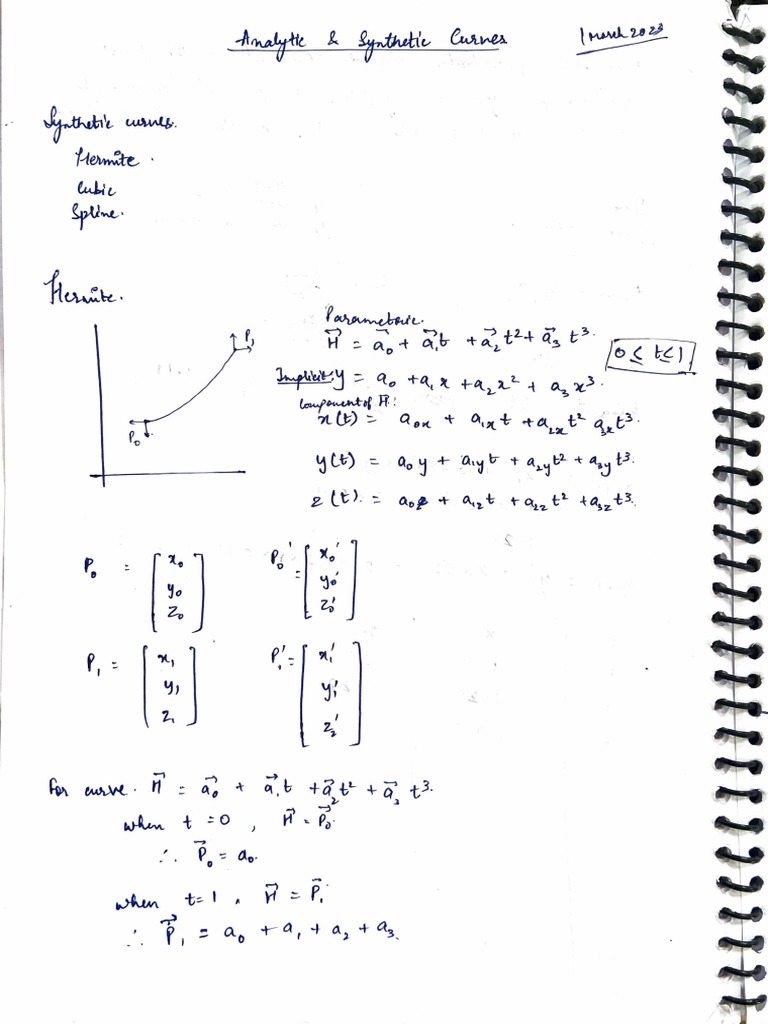 Analytic & Synthetic Curves
1 March 2023
Synthetic curves.
Hermite.
Cubic
Spline.
Hermite.
P₁
P₀
Parametric.
H⃗ = a⃗₀ + a⃗₁t + a⃗₂t² + a⃗₃t³.
0 ≤ t ≤ 1
Implicit: y = a₀ + a₁x + a₂x² + a₃x³.
Component of H⃗:
x(t) = a₀ₓ + a₁ₓt + a₂ₓt² a₃ₓt³.
y(t) = a₀y + a₁yt + a₂yt² + a₃yt³.
z(t) = a₀z + a₁zt + a₂zt² + a₃zt³.
P₀ = [x₀ y₀ z₀] P₀' = [x₀' y₀' z₀']
P₁ = [x₁ y₁ z₁] P₁' = [x₁' y₁' z₂']
For curve. H⃗ = a⃗₀ + a⃗₁t + a⃗₂t² + a⃗₃t³.
when t = 0, H⃗ = P⃗₀.
∴ P⃗₀ = a₀.
when t = 1, H⃗ = P⃗₁
∴ P⃗₁ = a₀ + a₁ + a₂ + a₃.